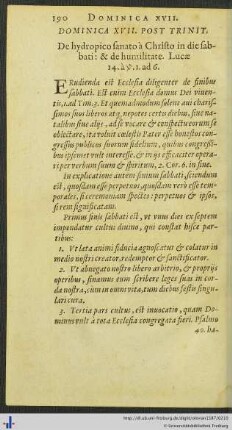 190 DOMINICA XVII.
DOMINICA XVII. POST TRINIT.
De hydropico sanato à Christo in die sab-
bati: & de humilitate. Lucæ
14. à ℣. 1. ad 6.
ERudienda est Ecclesia diligenter de finibus
sabbati. Est enim Ecclesia domus Dei viven-
tis, 1. ad Tim. 3. Et quemadmodum solent avi charis-
simos suos liberos atq; nepotes certis diebus, sive na-
talibus sive alijs, ad se vocare & conspectu eorum se
oblectare, ita voluit cœlestis Pater esse honestos con-
gressus publicos suorum fidelium, quibus congressi-
bus ipsemet vult interesse, & in ijs efficaciter opera-
ri per verbum suum & spiritum, 2. Cor. 6. in fine.
In explicatione autem finium sabbati, sciendum
est, quosdam esse perpetuos, quosdam verò esse tempo-
rales, si ceremoniam spectes: perpetuos & ipsos,
si rem significatam.
Primus finis sabbati est, ut unus dies ex septem
impendatur cultui divino, qui constat hisce par-
tibus:
1. Ut læta animi fiducia agnoscatur & colatur in
medio nostri creator, redemptor & sanctificator.
2. Ut abnegato nostro libero arbitrio, & proprijs
operibus, sinamus eum scribere leges suas in cor-
da nostra, cùm in omni vita, tum diebus festis singu-
lari cura.
3. Tertia pars cultus, est invocatio, quam Do-
minus vult à tota Ecclesia congregata fieri. Psalmo
40. ha-
http://dl.ub.uni-freiburg.de/diglit/
© Universitätsbibliothek Freiburg